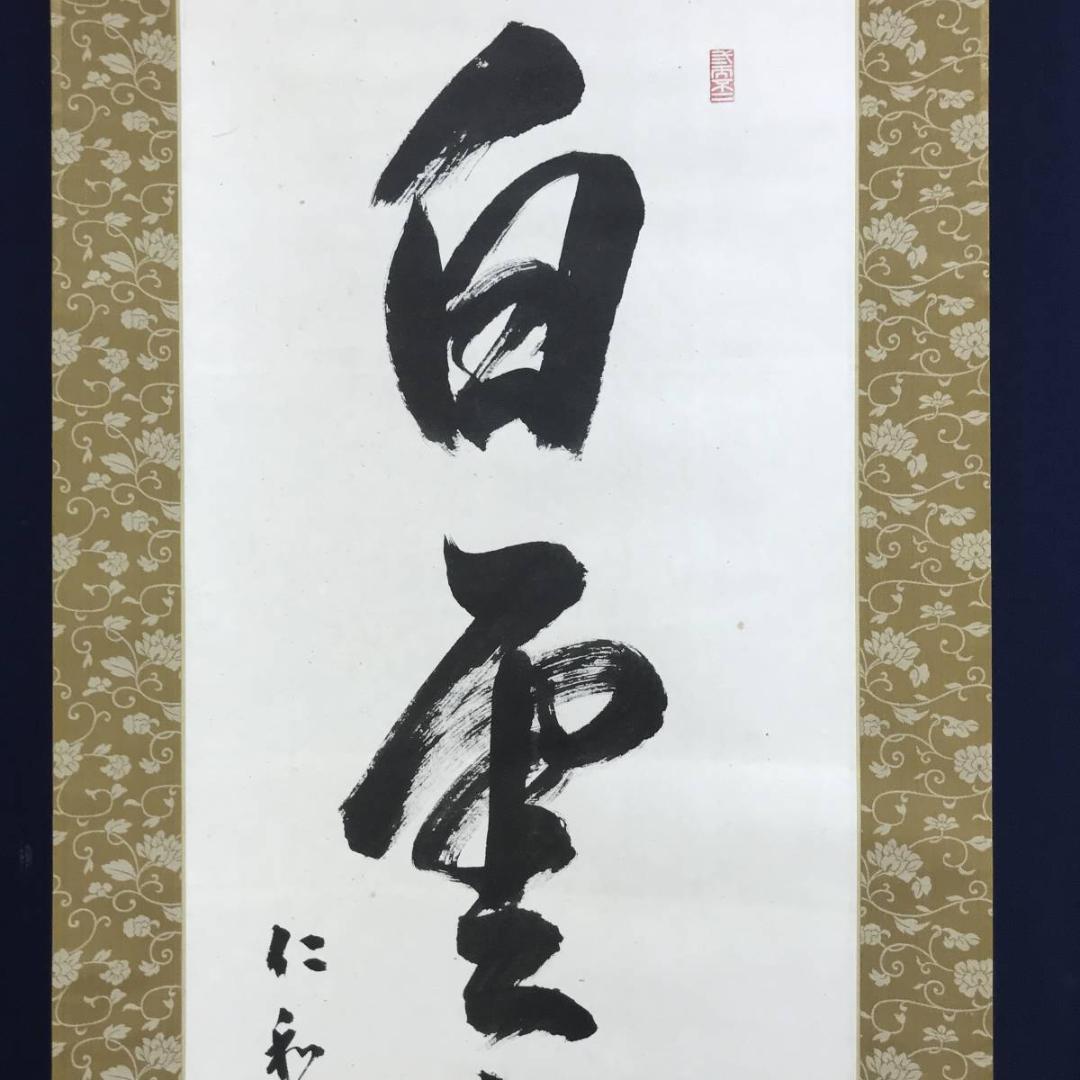 白雲
仁和